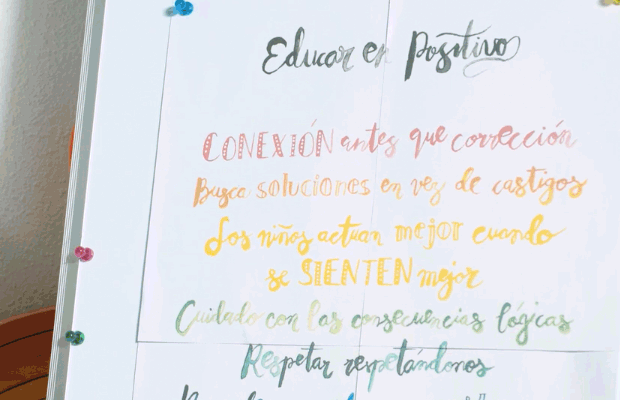 Educar en Positivo
CONEXIÓN antes que corrección
Busca SOLUCIONES en vez de castigos
Los niños actúan MEJOR cuando
se SIENTEN mejor
Cuidado con las consecuencias lógicas
Respetar respetándonos